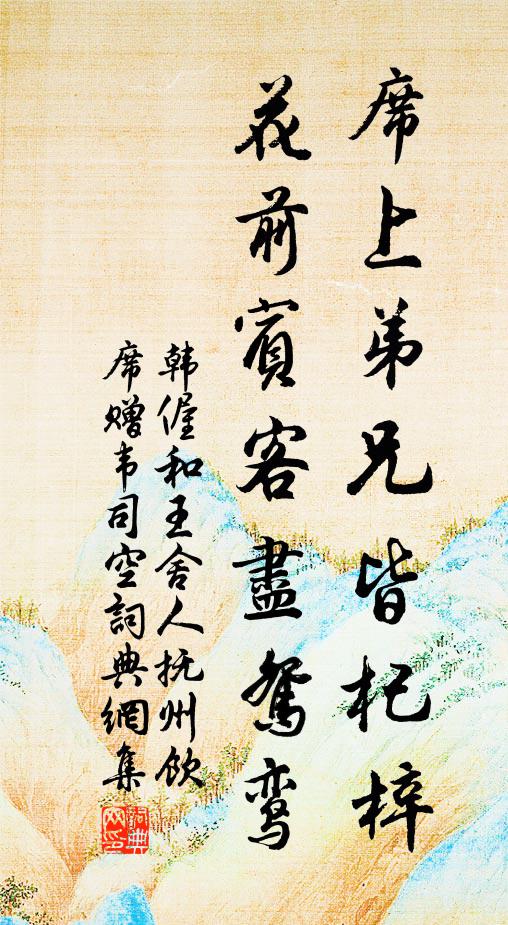 席上弟兄皆杞梓
花前賓客盡鴛鸾
韩偓和王舍人抚州飲
席赠韦司空詞典網集
詞典
网印